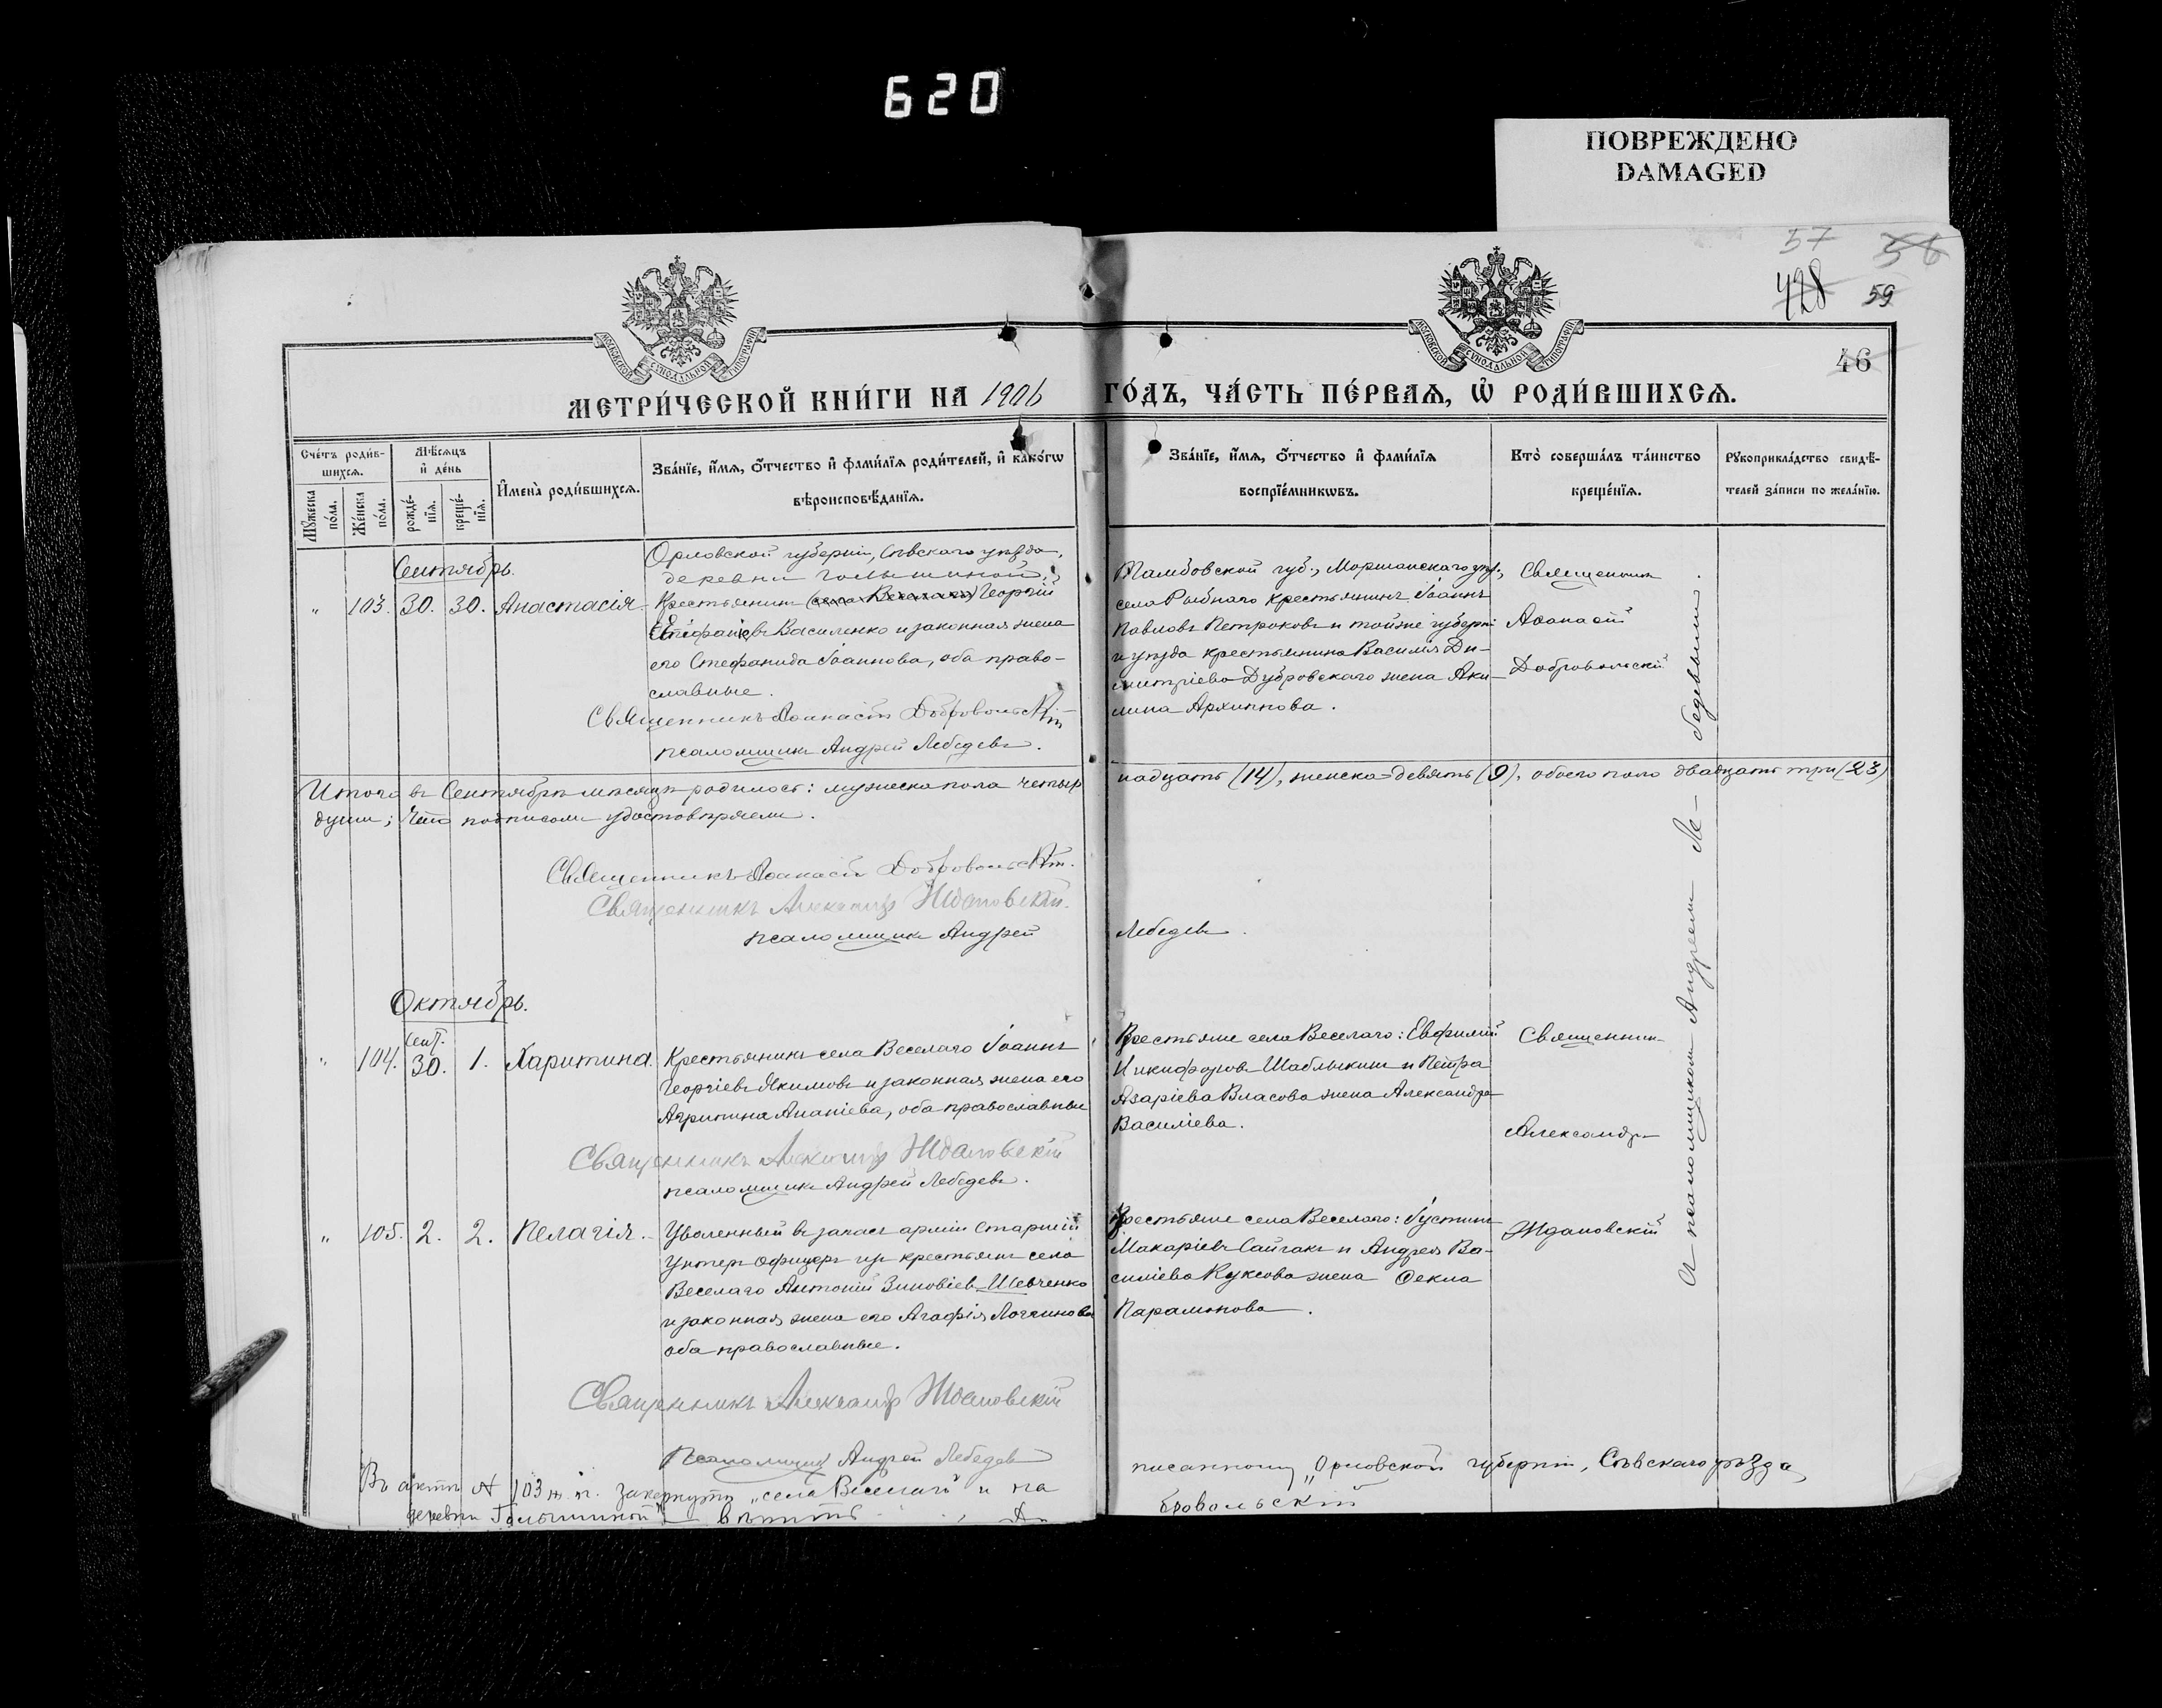 620
ПОВРЕЖДЕНО
DAMAGED
57 56
428 59
46
МОСКОВСКОЙ СѴНОДАЛЬНОЙ ТИПОГРАФІИ
МОСКОВСКОЙ СѴНОДАЛЬНОЙ ТИПОГРАФІИ
МЕТРИ́ЧЕСКОЙ КНИ́ГИ НА 1906 ГО́ДЪ, ЧА́СТЬ ПЕ́РВАЯ, Ѡ҆ РОДИ́ВШИХСЯ.
Сче́тъ роди́в-
шихся.
Мꙋ́жеска по́ла.
Же́нска по́ла.
Мѣ́сяцъ
и҆ де́нь
рожде́-
нїя.
креще́-
нїя.
И҆мена̀ роди́вшихся.
Зва́нїе, и҆́мя, ѻ҆́тчество и҆ фами́лїя роди́телей, и҆ како́гѡ
вѣроисповѣ́данїя.
Зва́нїе, и҆́мя, ѻ҆́тчество и҆ фами́лїя
воспрїе́мникѡвъ.
Кто̀ соверша́лъ та́инство
креще́нїя.
Рꙋкоприкла́дство свидѣ́-
телей за́писи по жела́нїю.
Сентябрь.
" 103. 30. 30. Анастасія
Орловской губерніи, Сѣвскаго уѣзда,
деревни Голышиной,
Крестьянинъ (села Веселаго) Георгій
Епифаніевъ Василенко и законная жена
его Стефанида Іоаннова, оба право-
славные.
Священникъ Аѳанасій Добровольскій
псаломщикъ Андрей Лебедевъ.
Тамбовской губ., Моршанскаго уѣз.,
села Рыбнаго крестьянинъ Іоаннъ
Павловъ Петроковъ и тойже губерніи
и уѣзда крестьянина Василія Ди-
митріева Дубровскаго жена Аки-
лина Архипова.
Священникъ
Аѳанасій
Добровольскій
Итого въ Сентябрѣ мѣсяцѣ родилось: мужеска пола четыр надцать (14), женска = девять (9), обоего пола двадцать три (23)
души; Что подписомъ удостовѣряемъ.
Священникъ Аѳанасій Добровольскій.
Священникъ Александръ Ждановскій.
псаломщикъ Андрей Лебедевъ.
Октябрь.
Сент.
" 104. 30. 1. Харитина.
Крестьянинъ села Веселаго Іоаннъ
Георгіевъ Якимовъ и законная жена его
Харитина Ананіева, оба православные
Священникъ Александръ Ждановскій
псаломщикъ Андрей Лебедевъ.
Крестьяне села Веселаго: Евфимій
Никифоровъ Шаблыкинъ и Петра
Азаріева Власова жена Александра
Василіева.
Священникъ
Александръ
Ждановскій
" 105. 2. 2. Пелагія.
Уволенный въ запасъ арміи Старшій
Унтеръ Офицеръ изъ крестьянъ села
Веселаго Антоній Зиновіевъ Шевченко
и законная жена его Агафія Логгинова
оба православные.
Священникъ Александръ Ждановскій
Псаломщикъ Андрей Лебедевъ
Крестьяне села Веселаго: Іустинъ
Макаріевъ Сайгакъ и Андрея Ва-
силіева Куксова жена Ѳекла
Парамонова.
съ псаломщикомъ Андреемъ Ле-бедевымъ
Въ актѣ № 103 зачеркнуто „села Веселаго" и на писанному „Орловской губерніи, Сѣвскаго уѣзда,
деревни Голышиной" вѣрить. Добровольскій